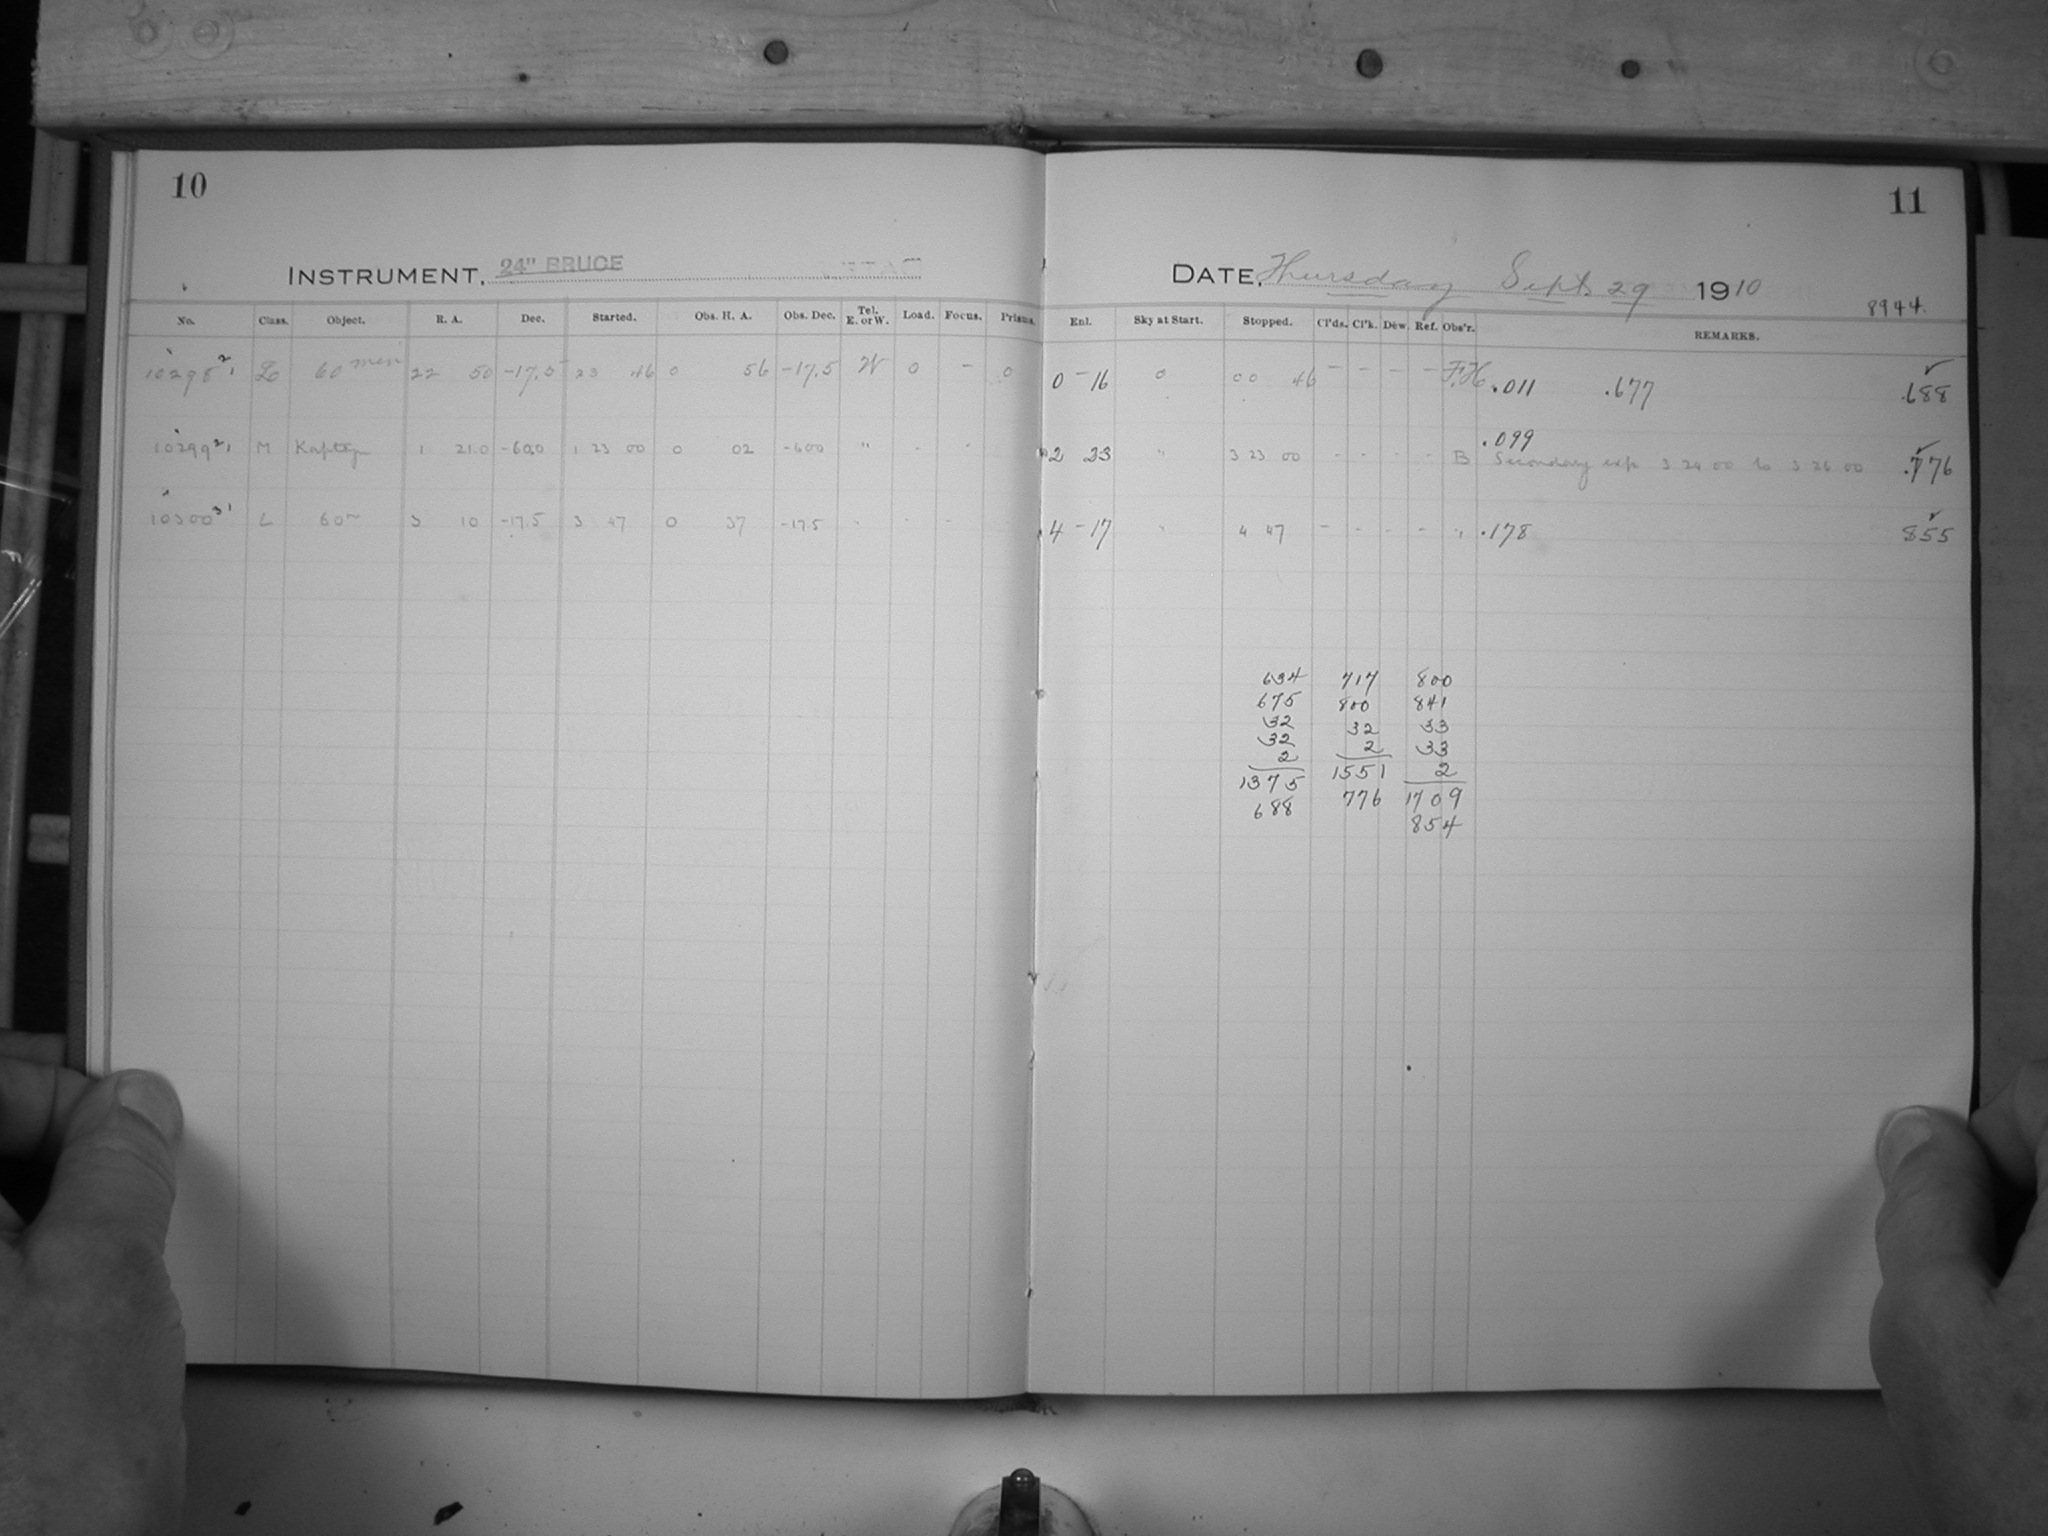 10 11
INSTRUMENT, 24" BRUCE DATE, Thursday Sept 29 1910
8944.
No. Class. Object. R. A. Dec. Started. Obs. H. A. Obs. Dec. Tel. E. or W. Load. Focus. Prisms. Enl. Sky at Start. Stopped. Cl'ds. Cl'k. Dew. Ref. Obs'r. REMARKS.
10298 2 1 L 60 min 22 50 -17.5 23 46 0 56 -17.5 W 0 - 0 0-16 0 00 46 - - - - F.H. .011 .677 .688
10299 2 1 M Kapteyn 1 21.0 -60.0 1 23 00 0 02 -60.0 " 2 23 " 3 23 00 - - - - B .099 Secondary exp 3 24 00 to 3 26 00 .776
10300 3 1 L 60m 3 10 -17.5 3 47 0 37 -17.5 4-17 " 4 47 - - - - " .178 855
634 717 800
675 800 841
32 32 33
32 2 33
2 1551 2
1375 776 1709
688 854